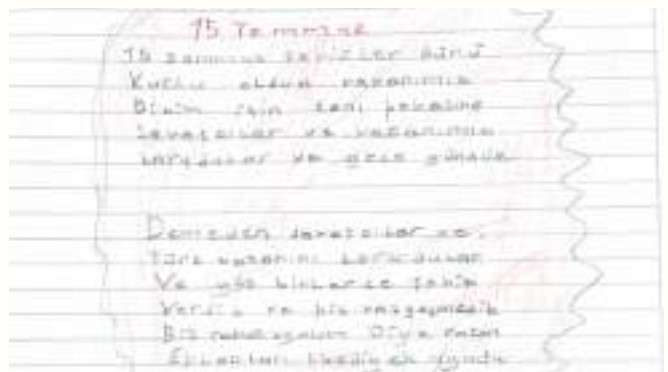 15 Temmuz
15 Temmuz şehitler günü
Kutlu olsun vatanımıza
Bizim için canı pahasına
Savaştılar ve vatanımızı
korudular ve gece gündüz
Demeden savaştılar ve
Türk vatanını korudular
Ve yüz binlerce şehit
Verdik ve biz vazgeçmedik
Biz rahat yaşayalım Diye vatan